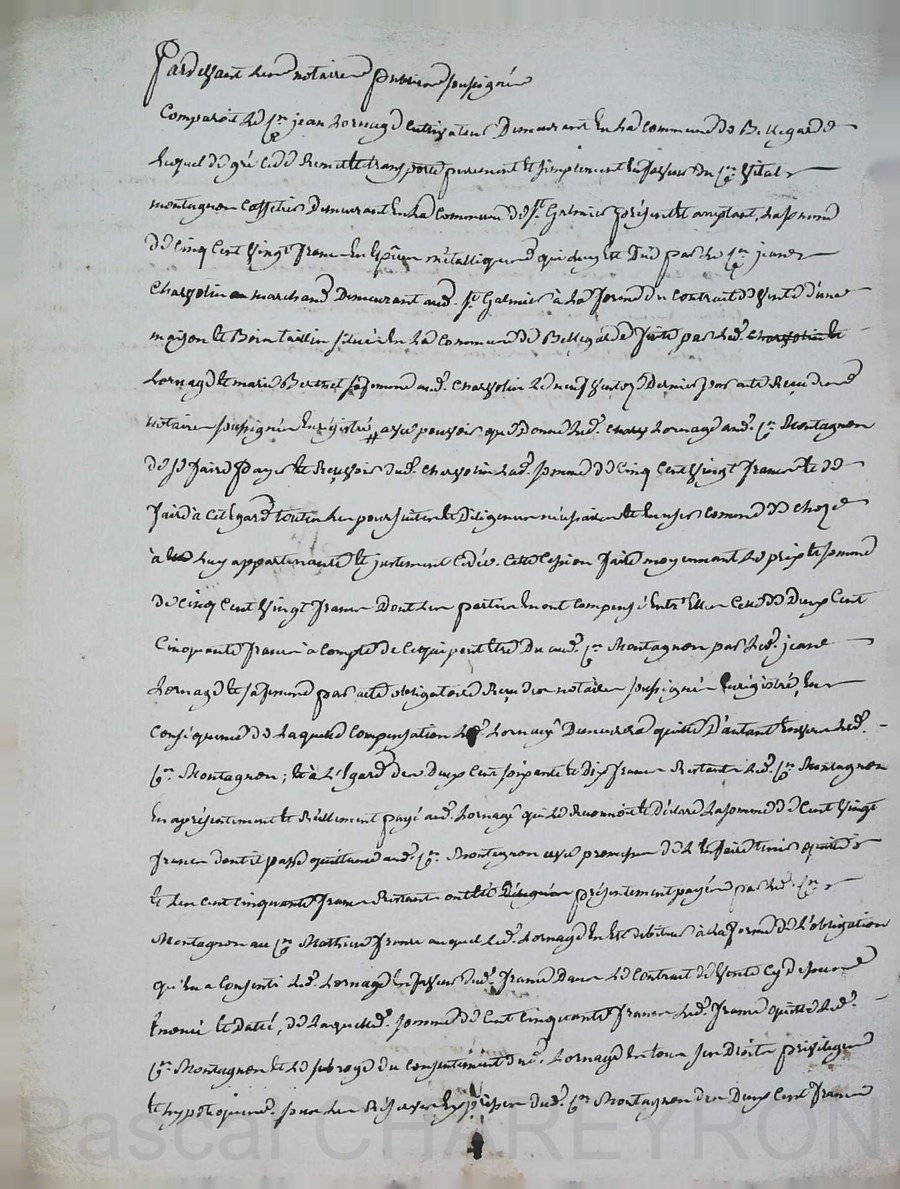 Pardevant les notaires publics soussignés
Comparoit le Cen jean Lornage cultivateur Demeurant en la commune de Bellegarde
Lequel de gré cede Remet et transporte purement et simplement en faveur du Cen Vital
montagnon Caffetier Demeurant en la commune de St Galmier présent et acceptant, la somme
de cinq cent vingt francs en espèces métalliques qui luy est Due par le Cen jean
Charvolin marchand Demeurant aud. St Galmier à la forme du Contrat de vente d'une
maison et Bois taillis située en la commune de Bellegarde faite par led. Charvolin et
Lornage et marie Berthet sa femme aud. Charvolin le neuf Dernier par acte Reçu des
notaires soussignés Enregistré avec pouvoir que Donne led. Lornage aud. Cen Montagnon
de se faire payer et Recevoir dud. Charvolin lad. somme de Cinq Cent vingt francs et de
faire à cet Egard toutes les poursuites et Diligences nécessaires et en user comme de choze
à luy appartenante et justement cédée. Cette Cession faite moyennant le prix et somme
de cinq cent vingt francs Dont les parties ont compensé entr'Elles Celle de Deux Cent
Cinquante francs à compte de ce qui peut être Du aud. Cen Montagnon par led. jean
Lornage et sa femme par acte obligatoire Reçu des notaires soussignés Enregistré, En
Conséquence de laquelle Compensation led. Lornage Demeurera quitte D'autant Envers led.
Cen Montagnon; et à l'Egard des Deux Cent soixante et Dix francs Restants led. Cen Montagnon
En a présentement et Réellement payé aud. Lornage qui le Reconnoit et Déclare la somme de Cent vingt
francs dont il passe quittance aud. Cen Montagnon avec promesse de l'en faire tenir quitte
et les cent cinquante francs Restants ont été présentement payés par led. Cen
Montagnon au Cen Mathieu france auquel led. Lornage En Est débiteur à la forme de l'obligation
qu'En a Consenti led. Lornage En faveur dud. france Dans le Contrat de vente Cy dessus
Enoncé et Daté, de laquelle somme de Cent Cinquante francs led. france quitte led.
Cen Montagnon et le subroge du Consentement dud. Lornage En tous ses Droits privilèges
et hypothèques. pour les dud. Cen Montagnon des Deux Cent francs
Pascal CHAREYRON